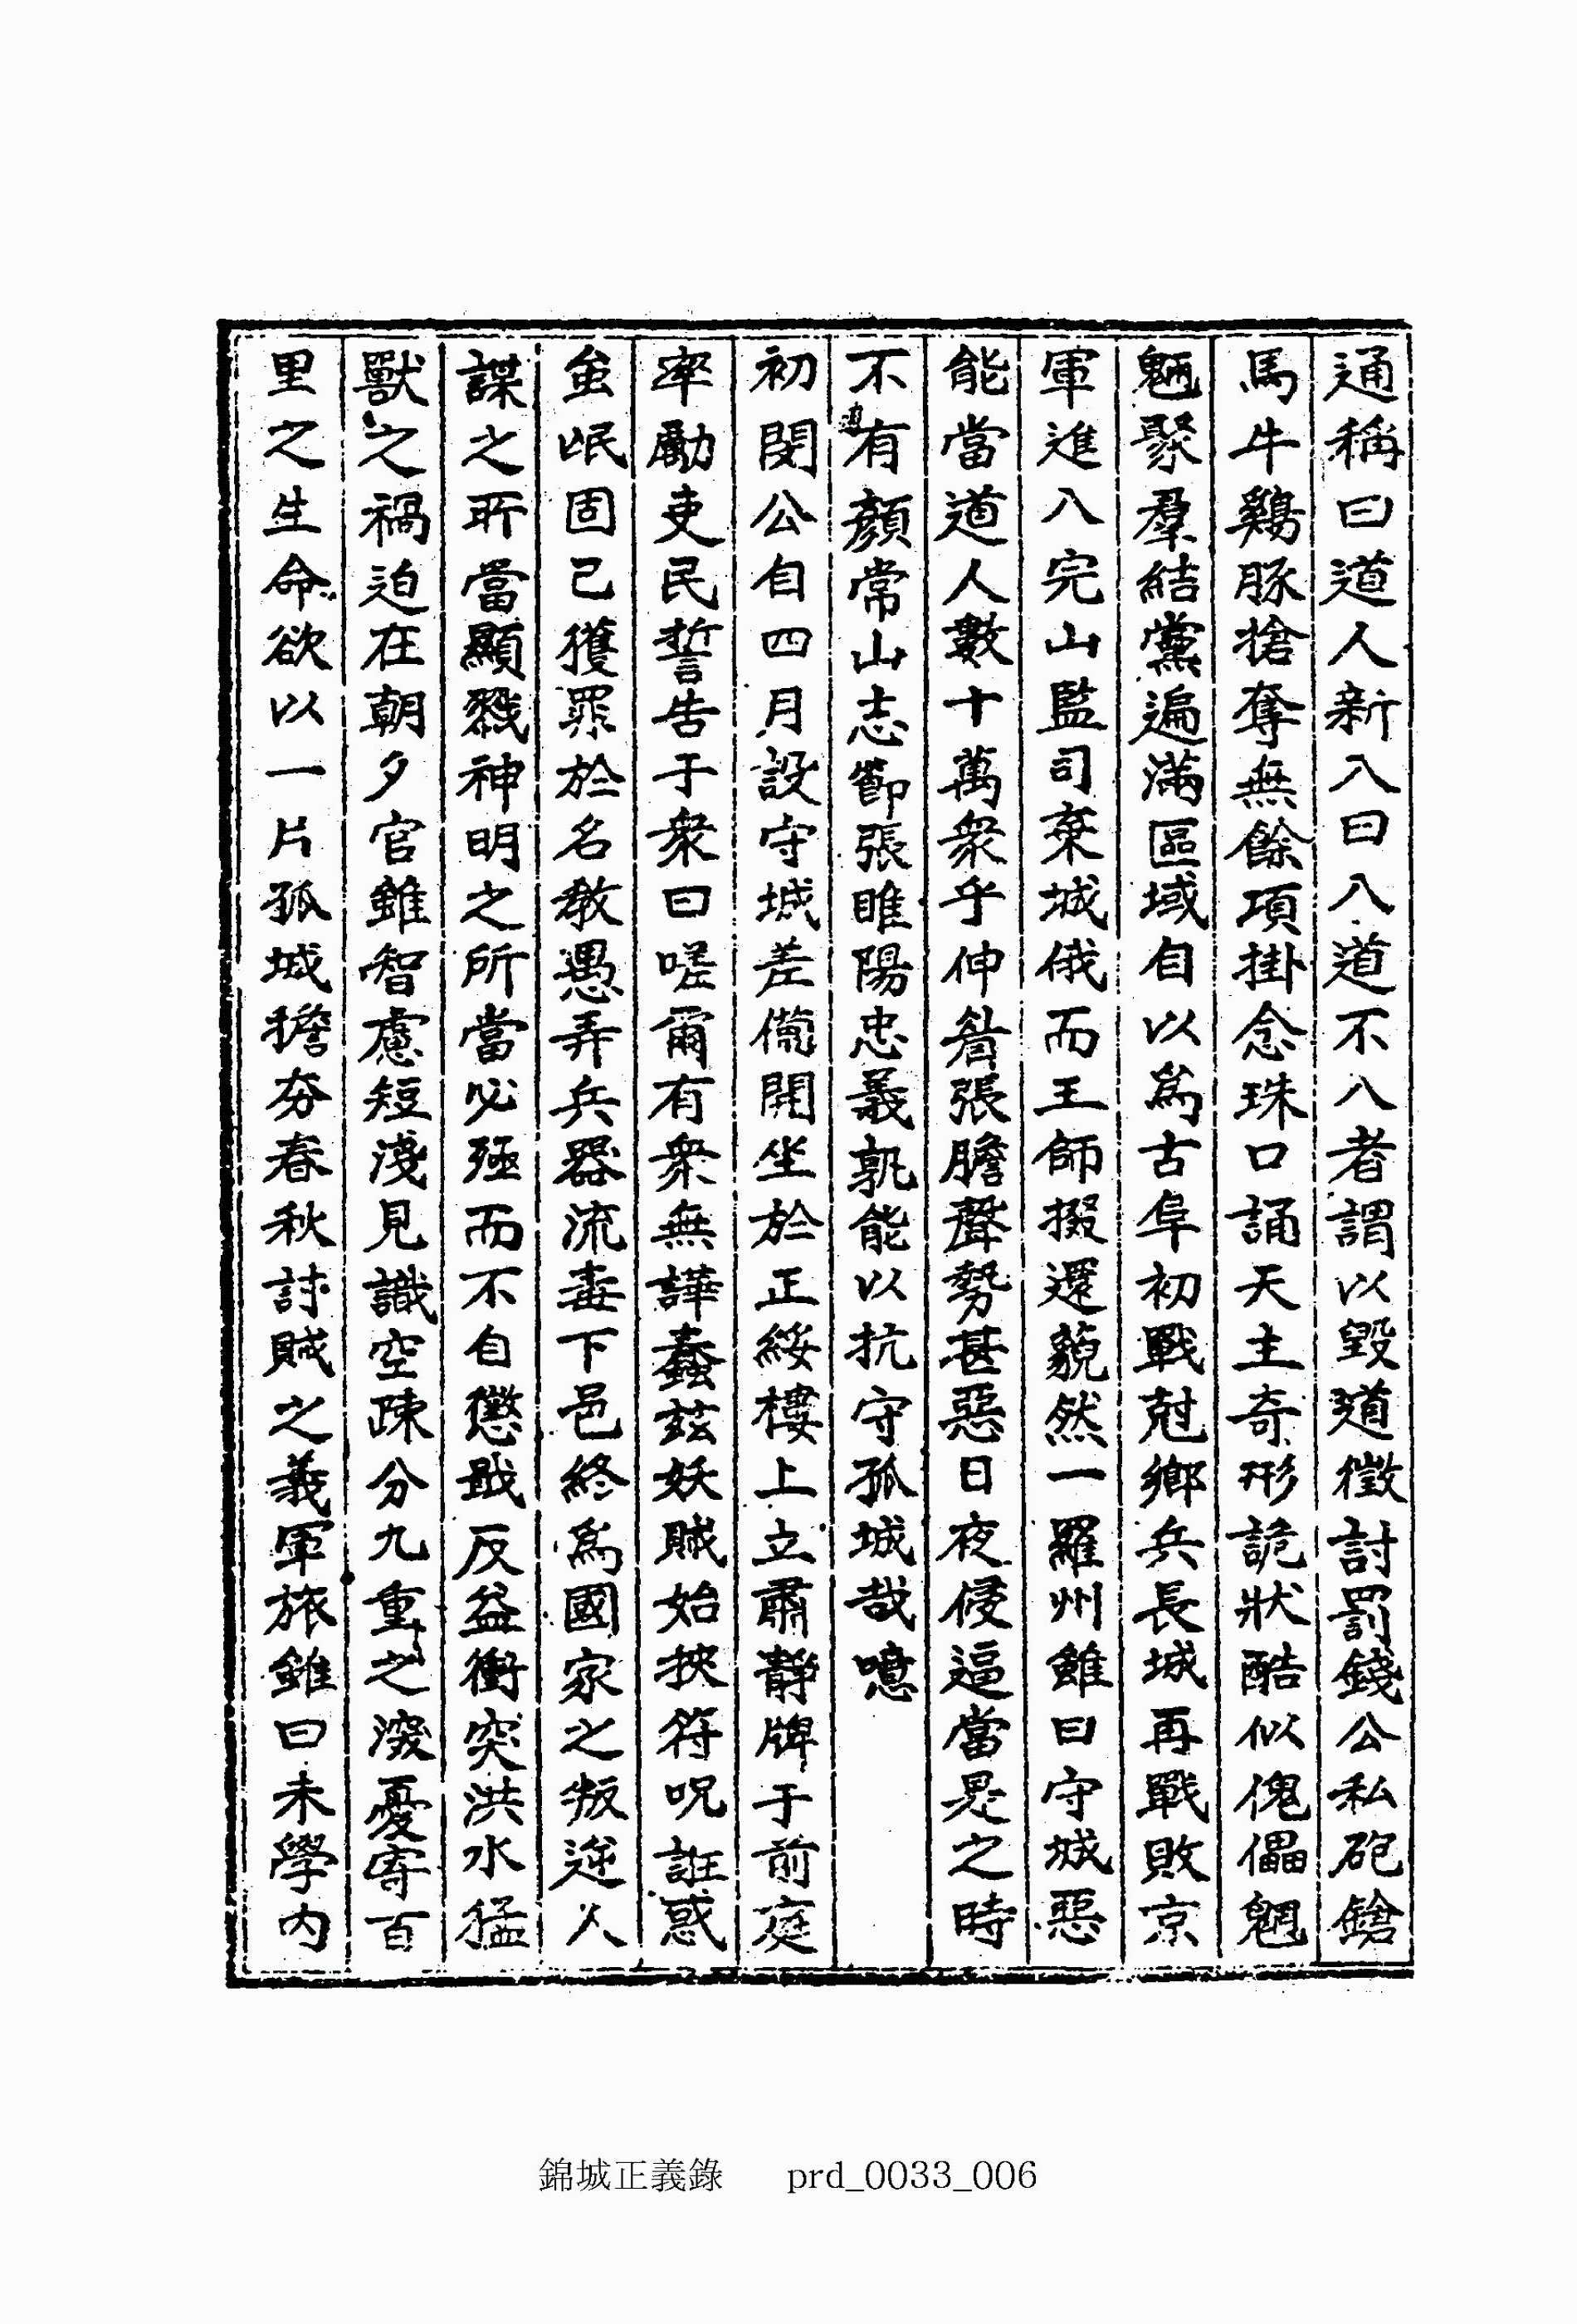 通稱曰道人新入曰入道不入者謂以毀道徵討罰錢公私砲鎗
馬牛鷄豚搶奪無餘項掛念珠口誦天主奇形詭狀酷似傀儡魍
魎聚羣結黨遍滿區域自以爲古阜初戰尅鄉兵長城再戰敗京
軍進入完山監司棄城俄而王師掇還藐然一羅州雖曰守城惡
能當道人數十萬衆乎伸眉張膽聲勢甚惡日夜侵逼當是之時
不有顏常山志節張睢陽忠義孰能以抗守孤城哉噫
初閔公自四月設守城差備開坐於正綏樓上立肅靜牌于前庭
率勵吏民誓告于衆曰嗟爾有衆無譁蠢玆妖賊始挾符呪誑惑
蚩氓固已獲罪於名敎愚弄兵器流毒下邑終爲國家之叛逆人
謀之所當顯戮神明之所當必殛而不自懲戢反益衝突洪水猛
獸之禍迫在朝夕官雖智慮短淺見識空疎分九重之深憂寄百
里之生命欲以一片孤城擔夯春秋討賊之義軍旅雖曰未學內
錦城正義錄 prd_0033_006